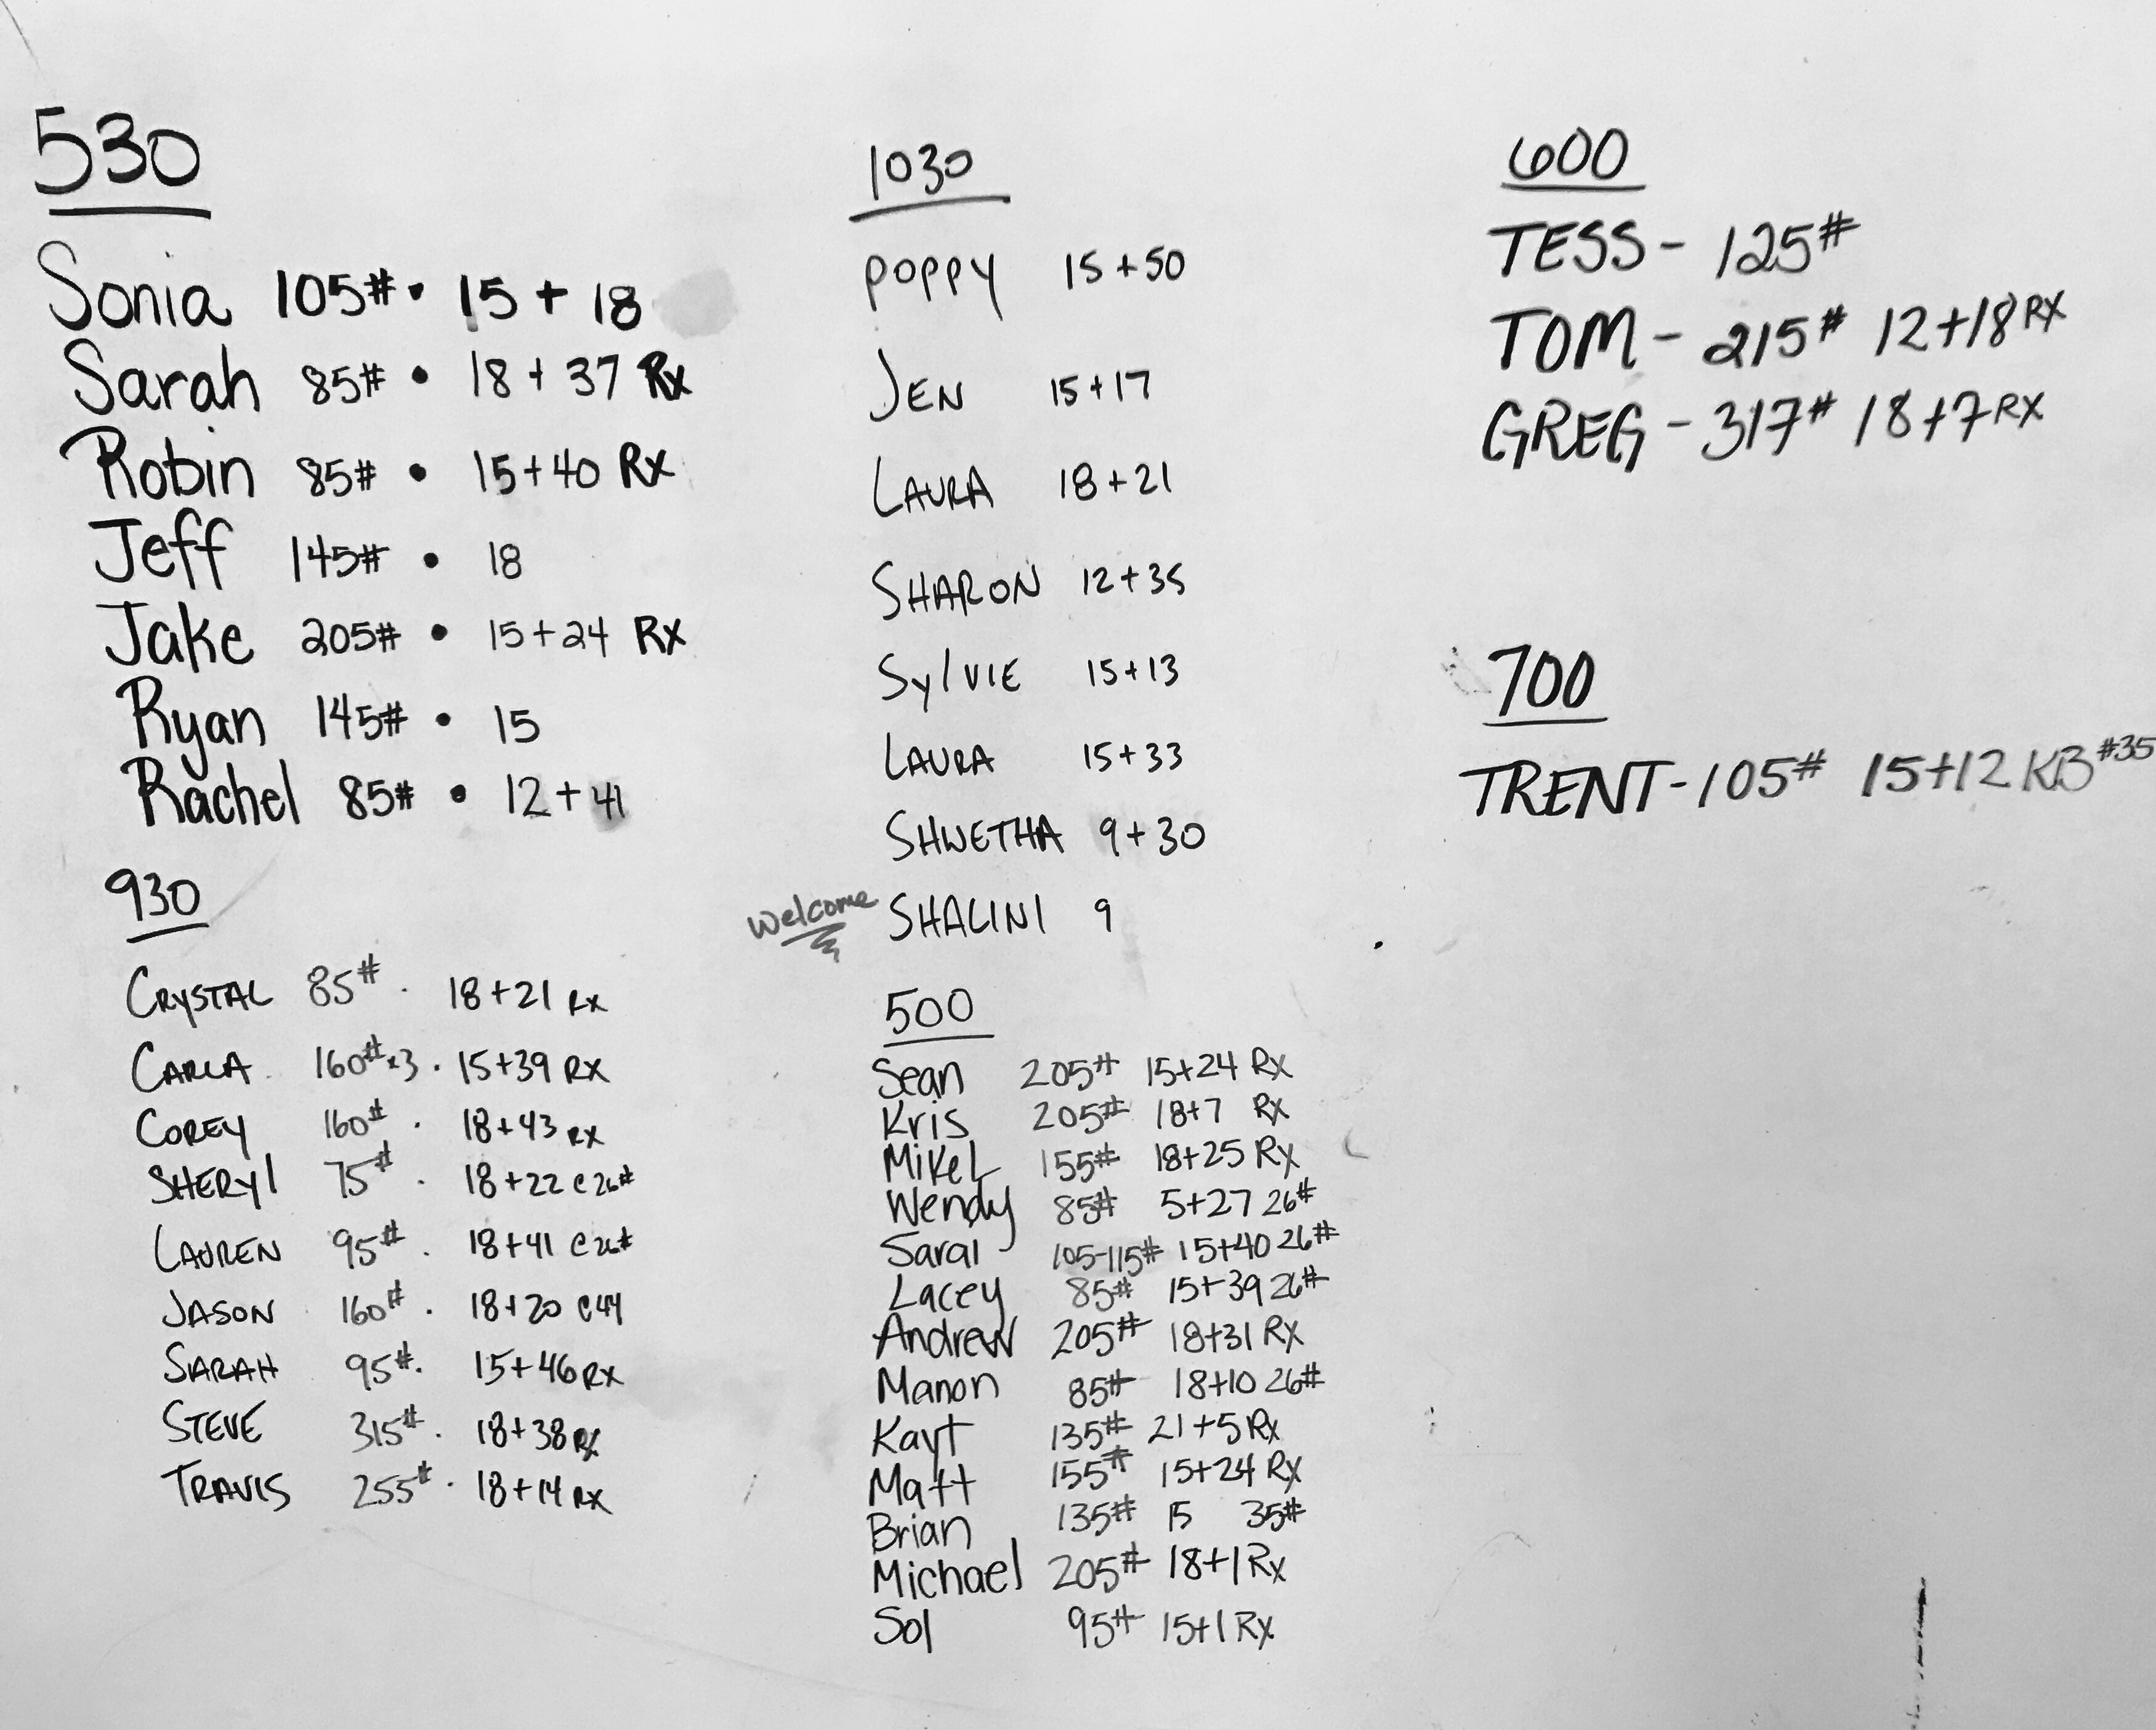 530
Sonia 105# • 15 + 18
Sarah 85# • 18 + 37 Rx
Robin 85# • 15+40 Rx
Jeff 145# • 18
Jake 205# • 15+24 Rx
Ryan 145# • 15
Rachel 85# • 12+41
930
CRYSTAL 85# . 18+21 RX
CARLA 160#x3 . 15+39 RX
COREY 160# . 18+43 RX
SHERYL 75# . 18+22 C26#
LAUREN 95# . 18+41 C26#
JASON 160# . 18+20 C44
SARAH 95#. 15+46 RX
STEVE 315# . 18+38 RX
TRAVIS 255# . 18+14 RX
1030
POPPY 15+50
JEN 15+17
LAURA 18+21
SHARON 12+35
SYLVIE 15+13
LAURA 15+33
SHWETHA 9+30
Welcome SHALINI 9
500
Sean 205# 15+24 Rx
Kris 205# 18+7 Rx
Mike L 155# 18+25 Rx
Wendy 85# 5+27 26#
Sarai 105-115# 15+40 26#
Lacey 85# 15+39 26#
Andrew 205# 18+31 Rx
Manon 85# 18+10 26#
Kayt 135# 21+5 Rx
Matt 155# 15+24 Rx
Brian 135# 15 35#
Michael 205# 18+1 Rx
Sol 95# 15+1 Rx
600
TESS - 125#
TOM - 215# 12+18 RX
GREG - 317# 18+7 RX
700
TRENT - 105# 15+12 KB #35